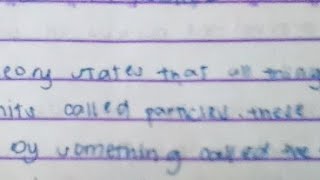 eory states that all thing
nits called particles, these
by something called the